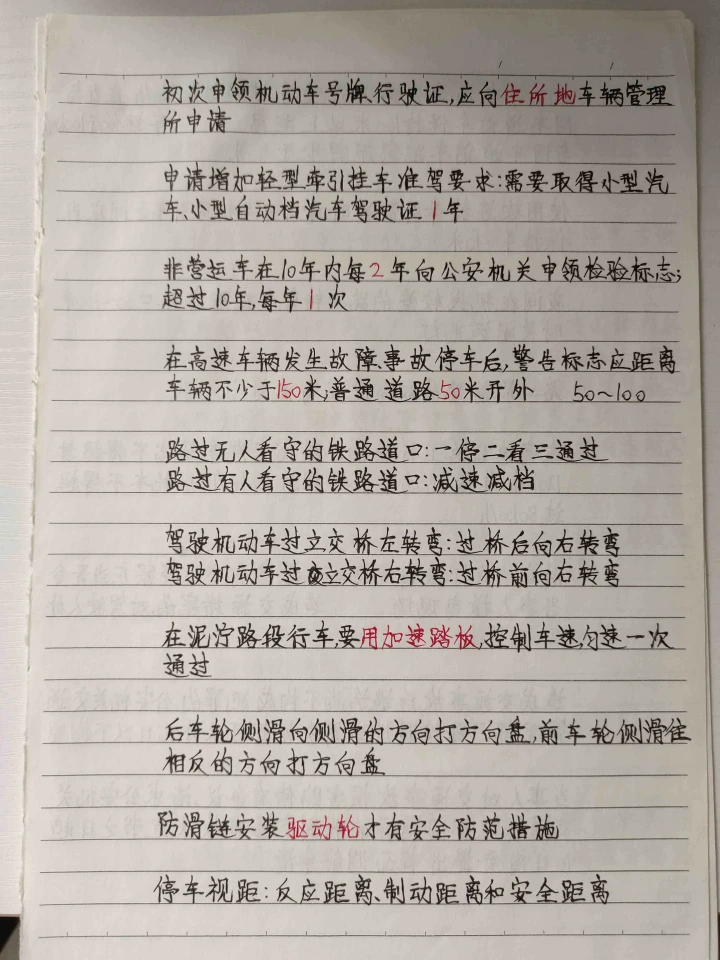 初次申领机动车号牌、行驶证,应向住所地车辆管理
所申请
申请增加轻型牵引挂车准驾要求:需要取得小型汽
车、小型自动档汽车驾驶证1年
非营运车在10年内每2年向公安机关申领检验标志;
超过10年,每年1次
在高速车辆发生故障、事故停车后,警告标志应距离
车辆不少于150米;普通道路50米开外 50~100
路过无人看守的铁路道口:一停二看三通过
路过有人看守的铁路道口:减速减档
驾驶机动车过立交桥左转弯:过桥后向右转弯
驾驶机动车过立交桥右转弯:过桥前向右转弯
在泥泞路段行车,要用加速踏板,控制车速,匀速一次
通过
后车轮侧滑向侧滑的方向打方向盘,前车轮侧滑往
相反的方向打方向盘
防滑链安装驱动轮才有安全防范措施
停车视距:反应距离、制动距离和安全距离